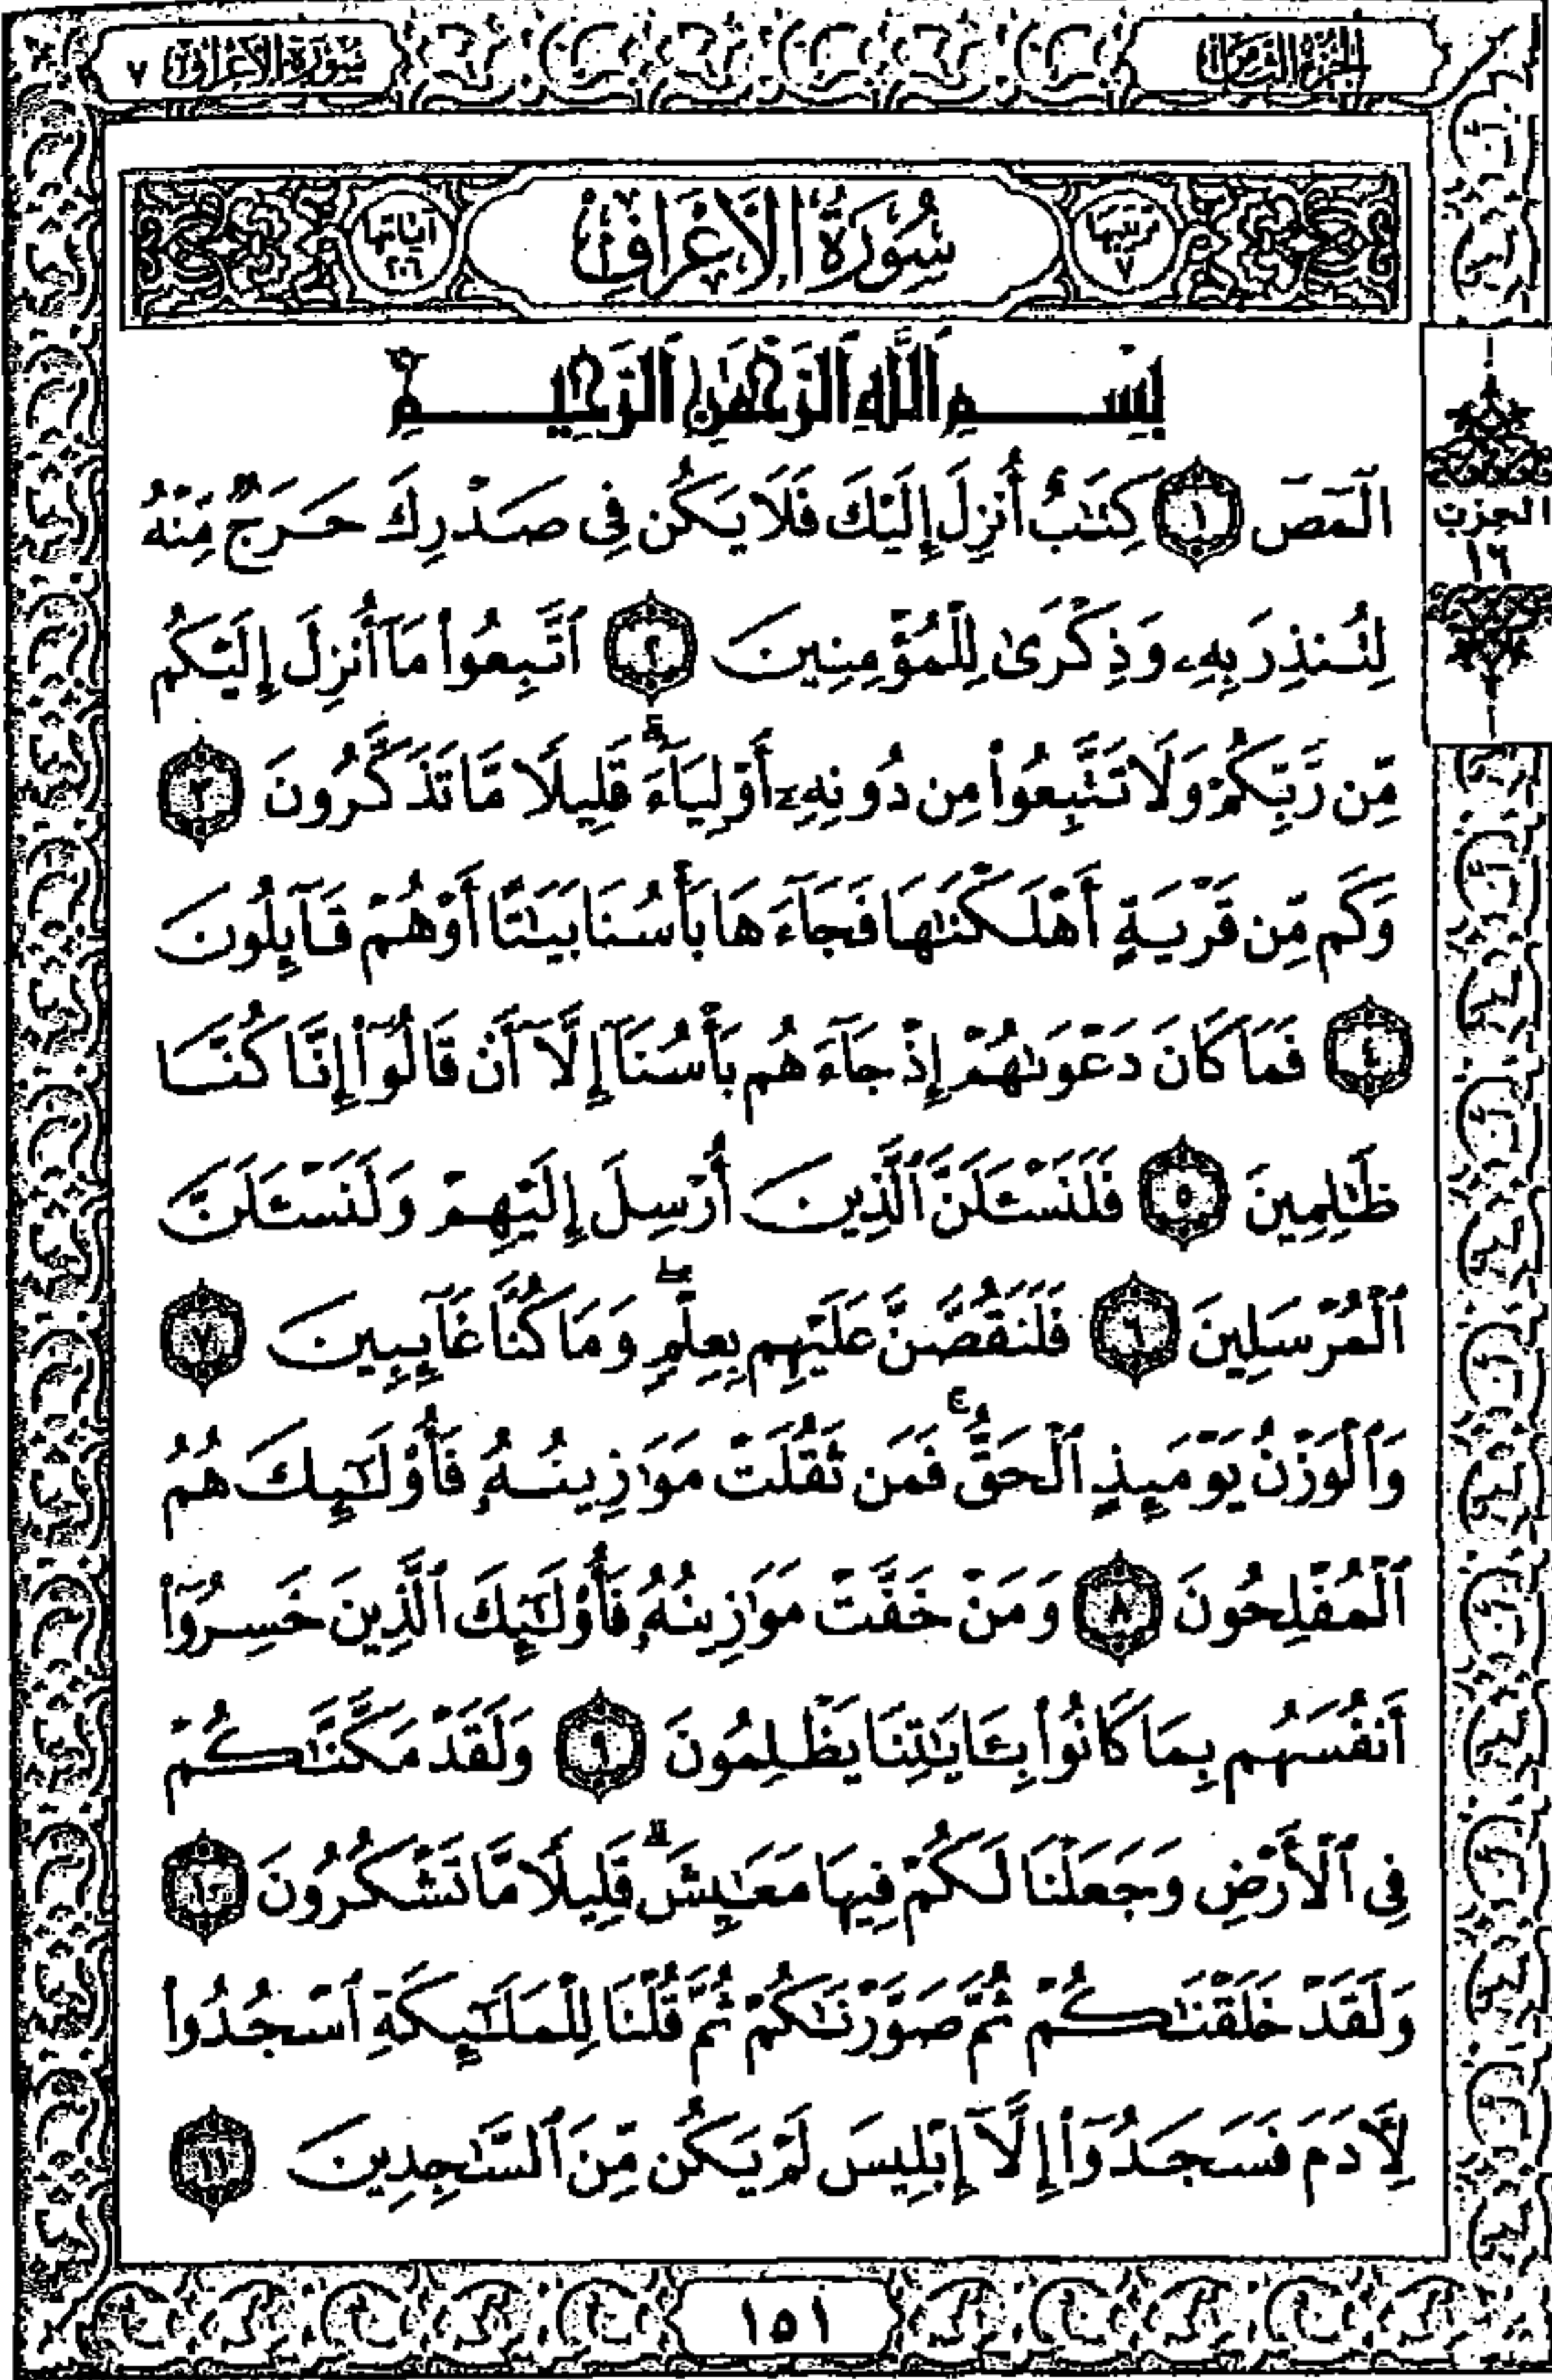 الجزء الثامن
سورة الأعراف ٧
ترتيبها ٧
سُورَةُ الْأَعْرَافِ
آياتها ٢٠٦
بِسْمِ ٱللَّهِ ٱلرَّحْمَٰنِ ٱلرَّحِيمِ
الٓمٓصٓ ١ كِتَٰبٌ أُنزِلَ إِلَيْكَ فَلَا يَكُن فِى صَدْرِكَ حَرَجٌ مِّنْهُ
لِتُنذِرَ بِهِۦ وَذِكْرَىٰ لِلْمُؤْمِنِينَ ٢ ٱتَّبِعُوا۟ مَآ أُنزِلَ إِلَيْكُم
مِّن رَّبِّكُمْ وَلَا تَتَّبِعُوا۟ مِن دُونِهِۦٓ أَوْلِيَآءَ ۗ قَلِيلًا مَّا تَذَكَّرُونَ ٣
وَكَم مِّن قَرْيَةٍ أَهْلَكْنَٰهَا فَجَآءَهَا بَأْسُنَا بَيَٰتًا أَوْ هُمْ قَآئِلُونَ
٤ فَمَا كَانَ دَعْوَىٰهُمْ إِذْ جَآءَهُم بَأْسُنَآ إِلَّآ أَن قَالُوٓا۟ إِنَّا كُنَّا
ظَٰلِمِينَ ٥ فَلَنَسْـَٔلَنَّ ٱلَّذِينَ أُرْسِلَ إِلَيْهِمْ وَلَنَسْـَٔلَنَّ
ٱلْمُرْسَلِينَ ٦ فَلَنَقُصَّنَّ عَلَيْهِم بِعِلْمٍ ۖ وَمَا كُنَّا غَآئِبِينَ ٧
وَٱلْوَزْنُ يَوْمَئِذٍ ٱلْحَقُّ ۚ فَمَن ثَقُلَتْ مَوَٰزِينُهُۥ فَأُو۟لَٰٓئِكَ هُمُ
ٱلْمُفْلِحُونَ ٨ وَمَنْ خَفَّتْ مَوَٰزِينُهُۥ فَأُو۟لَٰٓئِكَ ٱلَّذِينَ خَسِرُوٓا۟
أَنفُسَهُم بِمَا كَانُوا۟ بِـَٔايَٰتِنَا يَظْلِمُونَ ٩ وَلَقَدْ مَكَّنَّٰكُمْ
فِى ٱلْأَرْضِ وَجَعَلْنَا لَكُمْ فِيهَا مَعَٰيِشَ ۗ قَلِيلًا مَّا تَشْكُرُونَ ١٠
وَلَقَدْ خَلَقْنَٰكُمْ ثُمَّ صَوَّرْنَٰكُمْ ثُمَّ قُلْنَا لِلْمَلَٰٓئِكَةِ ٱسْجُدُوا۟
لِـَٔادَمَ فَسَجَدُوٓا۟ إِلَّآ إِبْلِيسَ لَمْ يَكُن مِّنَ ٱلسَّٰجِدِينَ ١١
الحزب
١٦
١٥١